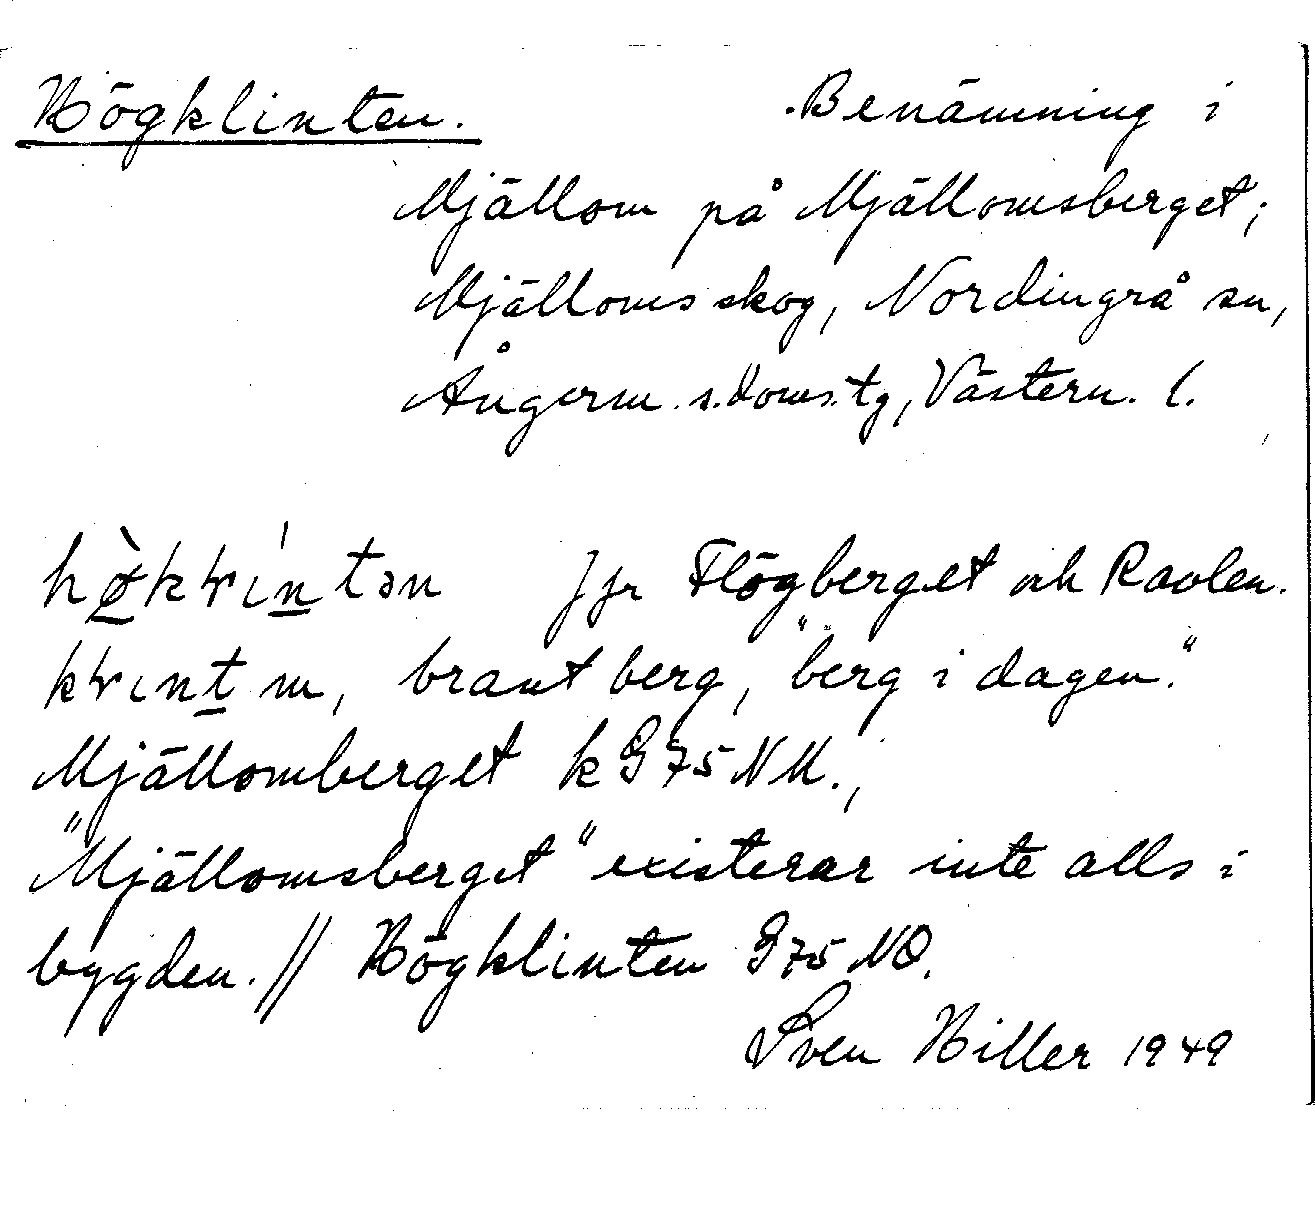 Högklinten. Benämning i
Mjällom på Mjällomsberget;
Mjälloms skog, Nordingrå sn,
Ångerm. s. doms. tg, Västern. l.
hø̀kkɽíntən jfr Flögberget och Raolen.
kɽıntn, brant berg, "berg i dagen."
Mjällomberget k G75 NM.;
"Mjällomsberget" existerar inte alls i
bygden. // Högklinten G75 NO.
Sven Hiller 1949